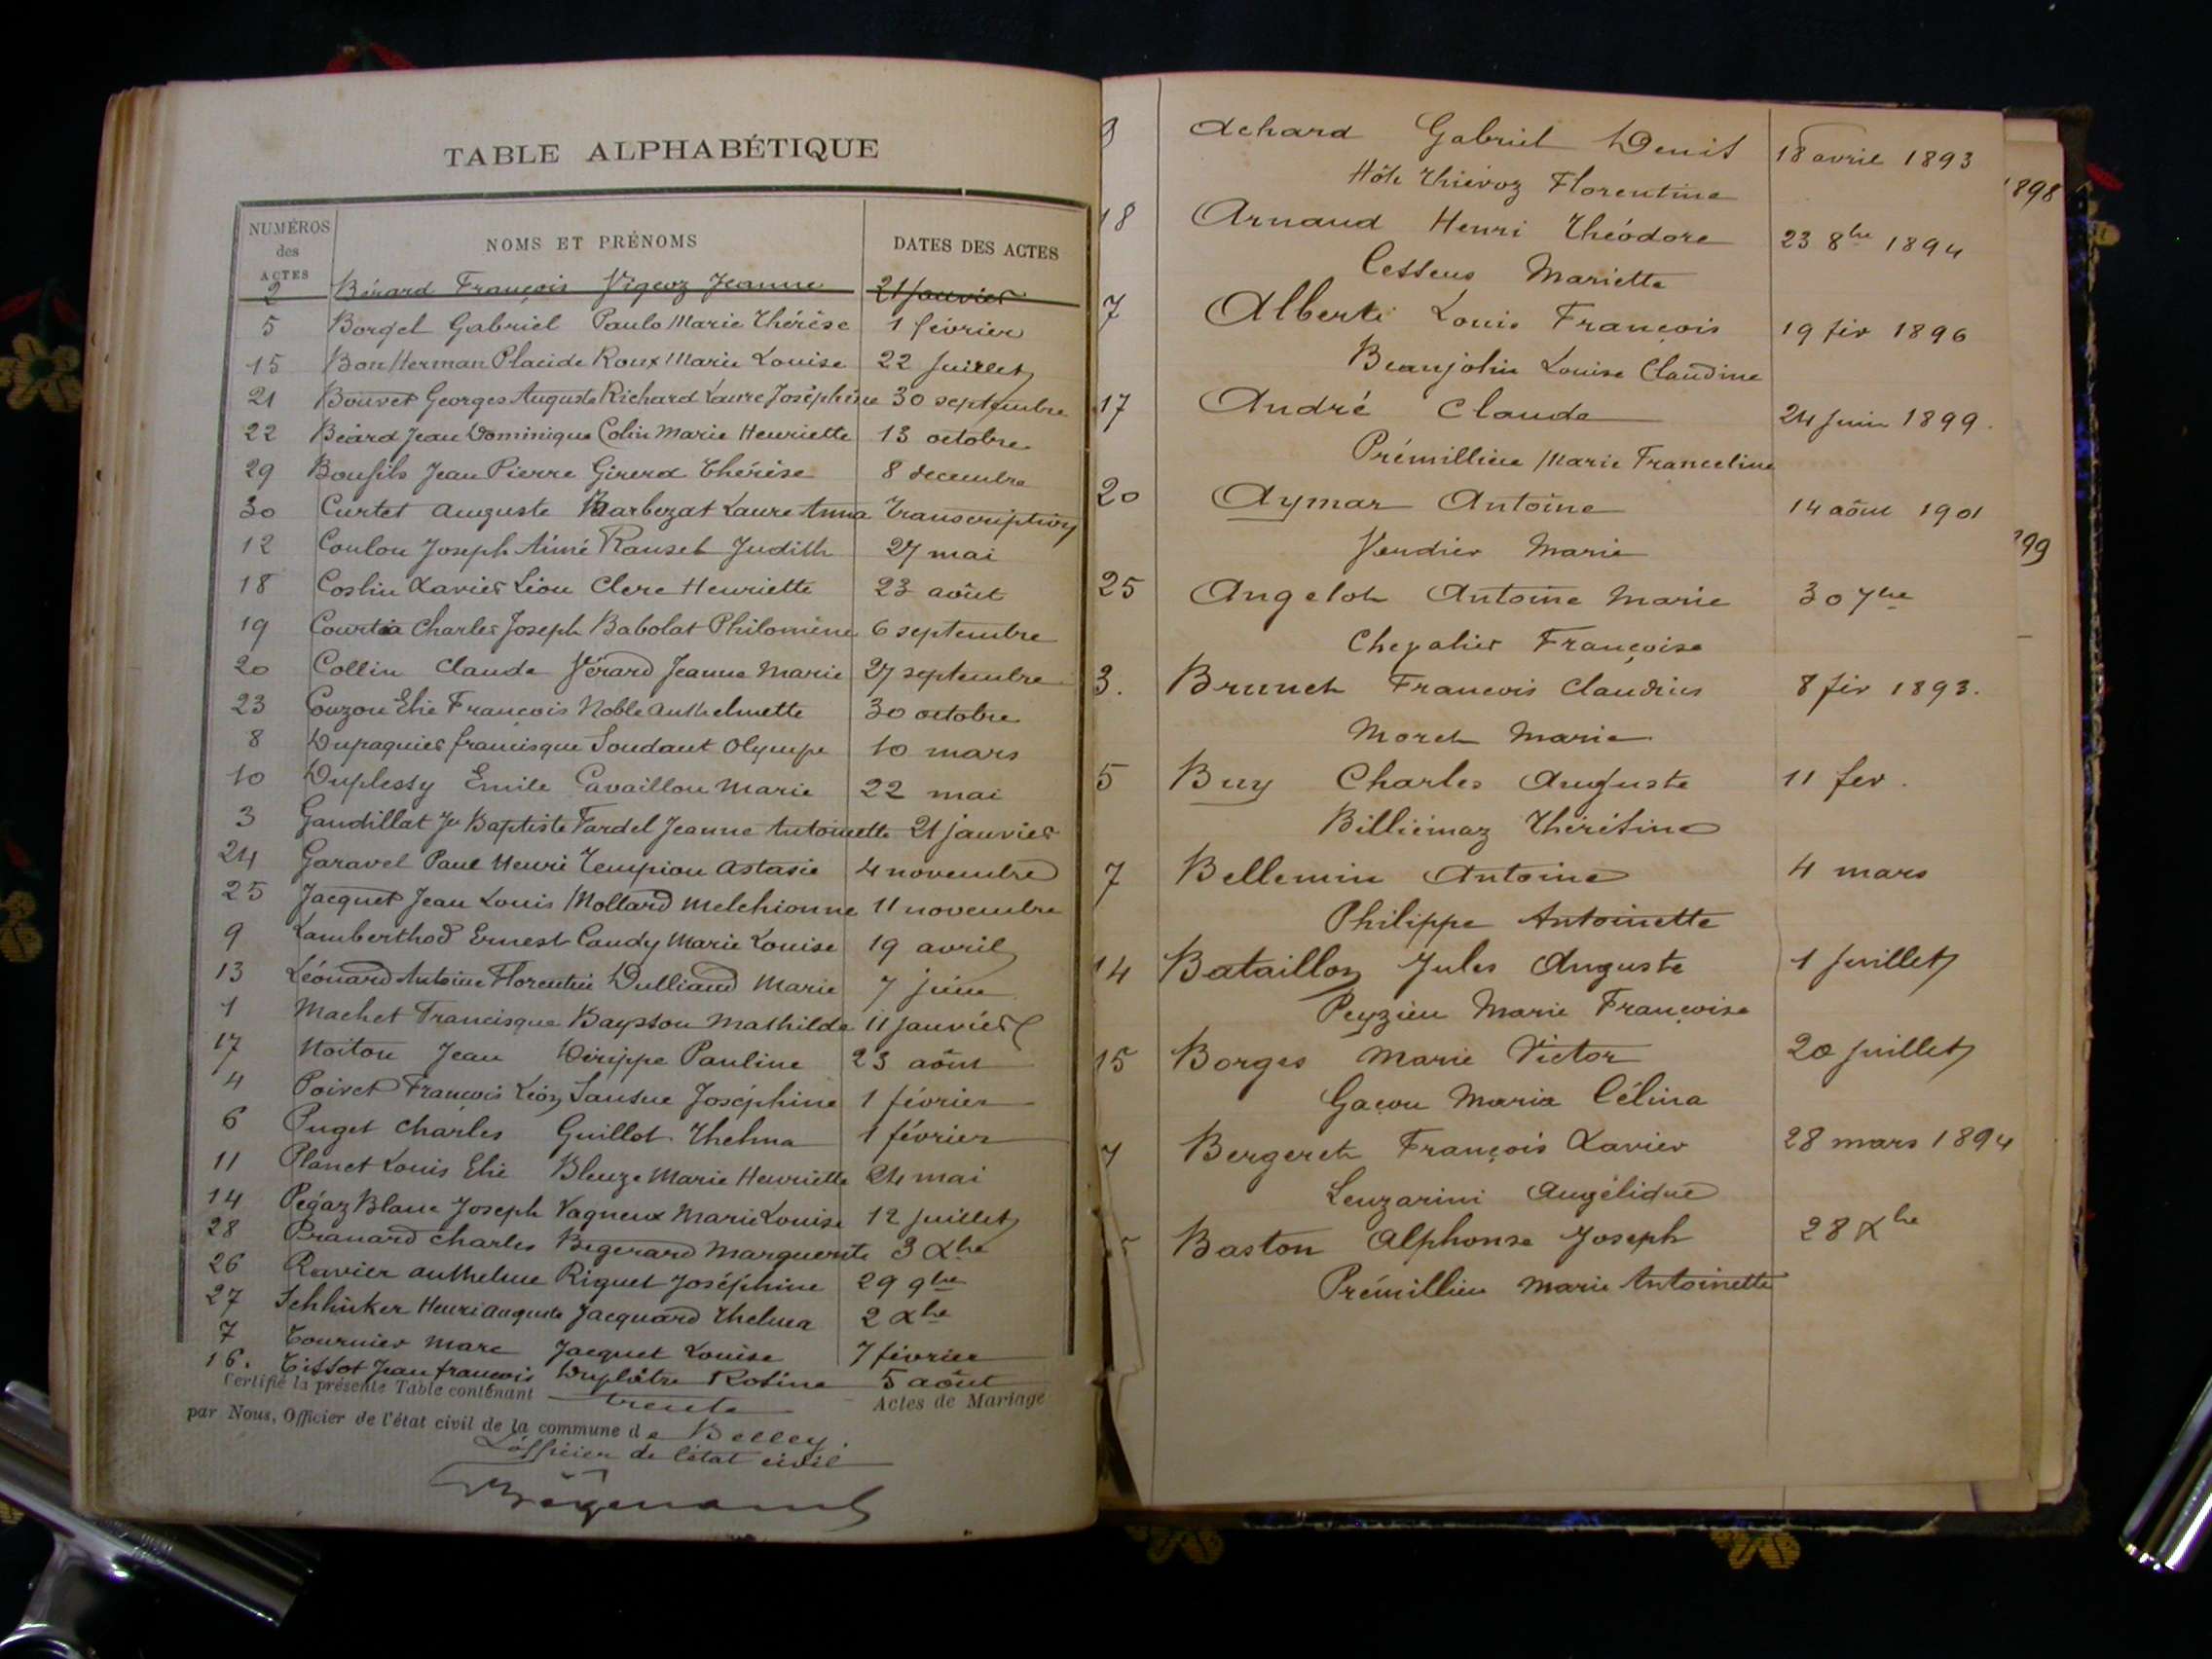 TABLE ALPHABÉTIQUE
NUMÉROS des ACTES NOMS ET PRÉNOMS DATES DES ACTES
2 Bérard François Vigeoz Jeanne 21 janvier
5 Borgel Gabriel Paulo Marie Thérèse 1 février
15 Bon Herman Placide Roux Marie Louise 22 juillet
21 Bouvet Georges Auguste Richard Laure Joséphine 30 septembre
22 Béard Jean Dominique Colin Marie Henriette 13 octobre
29 Bonfils Jean Pierre Girerd Thérèse 8 decembre
30 Curtet Auguste Barbezat Laure Anna Transcription
12 Coulon Joseph Aimé Ranset Judith 27 mai
18 Coslin Xavier Léon Clerc Henriette 23 août
19 Courtia Charles Joseph Babolat Philomène 6 septembre
20 Collin Claude Vérard Jeanne Marie 27 septembre
23 Couzon Elie François Noble Anthelmette 30 octobre
8 Dupaquier francisque Soudant Olympe 10 mars
10 Duplessy Emile Cavaillon Marie 22 mai
3 Gaudillat Jn Baptiste Fardel Jeanne Antoinette 21 janvier
24 Garavel Paul Henri Tempion Astasie 4 novembre
25 Jacquet Jean Louis Mollard Melchionne 11 novembre
9 Lamberthod Ernest Caudy Marie Louise 19 avril
13 Léonard Antoine Florentin Dulliand Marie 7 juin
1 Machet Francisque Baysson Mathilde 11 janvier
17 Noiton Jean Dérippe Pauline 23 août
4 Poiret François Léon Sansue Joséphine 1 février
6 Puget Charles Guillot Thelma 1 février
11 Planet Louis Elie Bleuze Marie Henriette 24 mai
14 Pégaz Blanc Joseph Vagneux Marie Louise 12 juillet
28 Pranard Charles Begerard Marguerite 3 Xbre
26 Ravier Anthelme Riguet Joséphine 29 9bre
27 Schlinker Henri Auguste Jacquard Thelma 2 Xbre
7 Tournier Marc Jacquet Louise 7 février
16. Tissot Jean françois Duplâtre Rosine 5 août
Certifié la présente Table contenant trente Actes de Mariage
par Nous, Officier de l'état civil de la commune de Belley.
L'officier de l'état civil
9 Achard Gabriel Denis 18 avril 1893
Hôte Thiévoz Florentine
18 Arnaud Henri Théodore 23 8bre 1894
Cessens Mariette
7 Alberti Louis François 19 fév 1896
Beaujolin Louise Claudine
17 André Claude 24 juin 1899.
Prémillieu Marie Franceline
20 Aymar Antoine 14 août 1901
Vendier Marie
25 Angelot Antoine Marie 30 7bre
Chevalier Françoise
3. Brunet Francois Claudius 8 fév 1893.
Moret Marie
5 Buy Charles Auguste 11 fev.
Billiémaz Thérésine
7 Bellemin Antoine 4 mars
Philippe Antoinette
14 Bataillon Jules Auguste 1 juillet
Peyzieu Marie Françoise
15 Borges Marie Victor 20 juillet
Gaçon Maria Célina
7 Bergeret François Xavier 28 mars 1894
Lenzarini Angélique
Baston Alphonse Joseph 28 Xbre
Prémillieu Marie Antoinette
1898
99